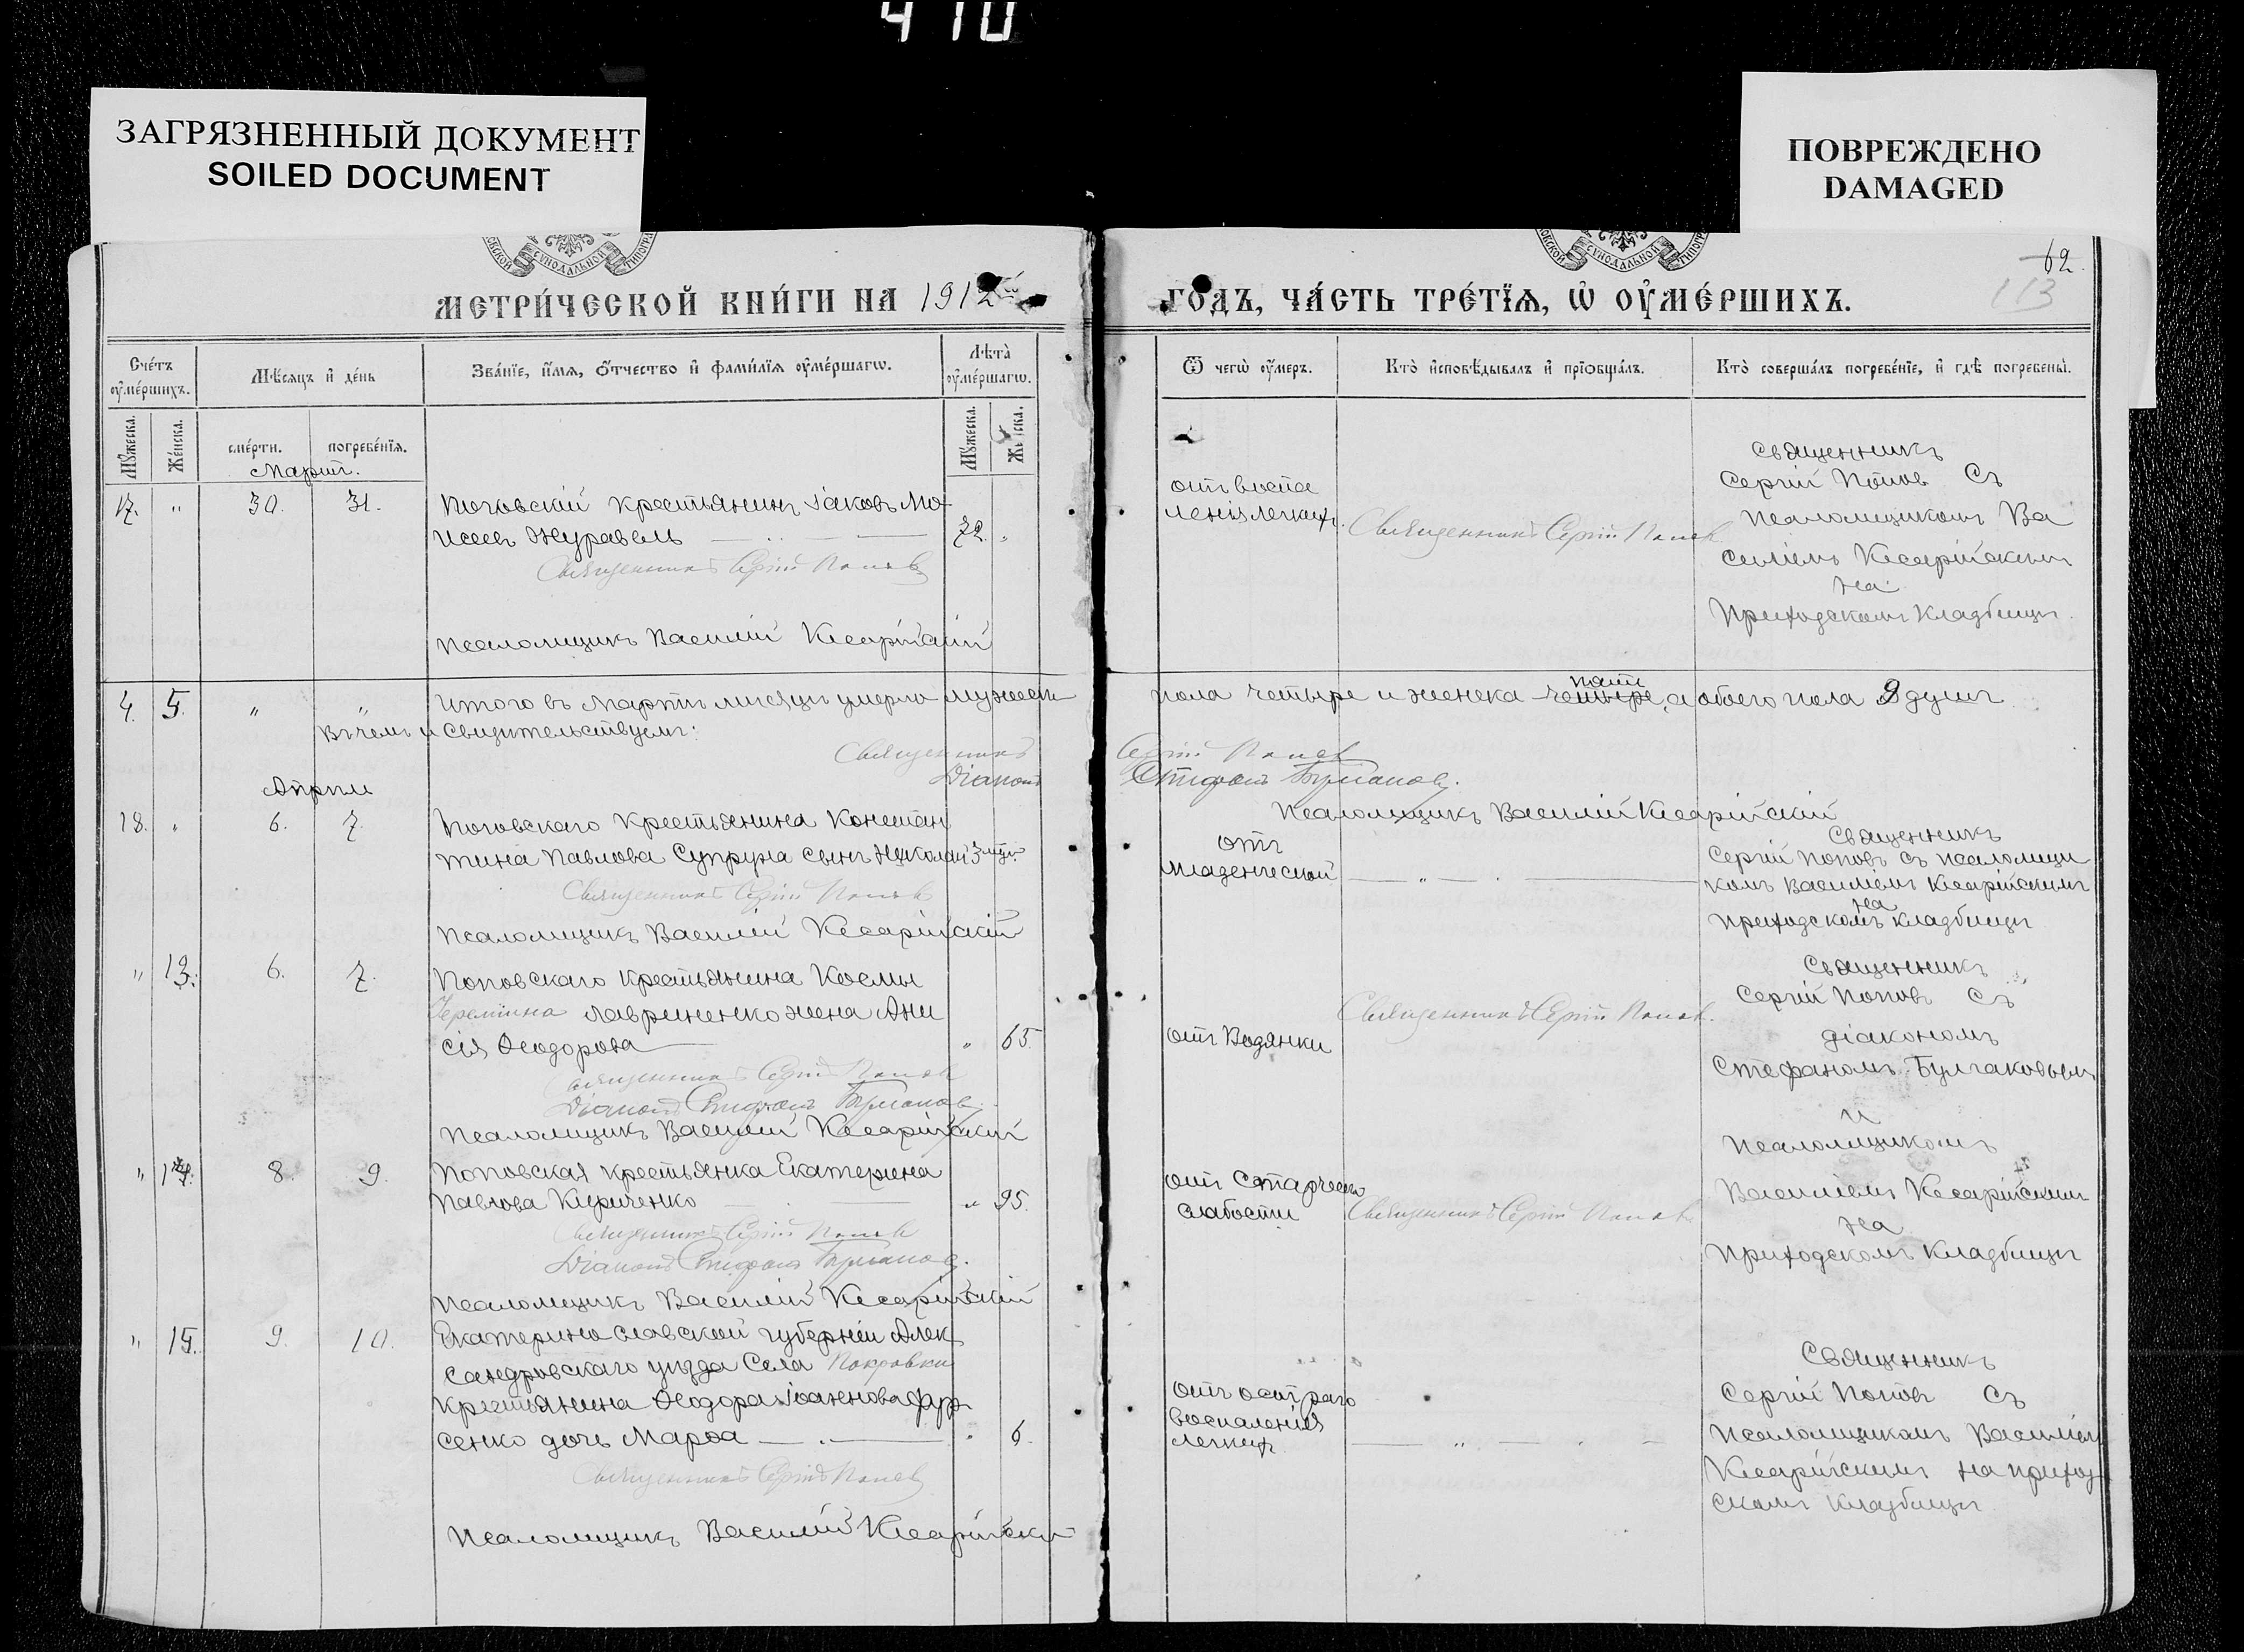 410
ЗАГРЯЗНЕННЫЙ ДОКУМЕНТ
SOILED DOCUMENT
ПОВРЕЖДЕНО
DAMAGED
62.
113
МЕТРИ́ЧЕСКОЙ КНИ́ГИ НА 1912
ГОДЪ, ЧА́СТЬ ТРЕ́ТЇѦ, Ѡ ОУМЕ́РШИХЪ.
Сче́тъ оумершихъ.
Мѣсяцъ и де́нь
Зва́нїе, и́мѧ, о́тчество и фами́лїѧ оуме́ршагѡ.
Лѣта̀ оуме́ршагѡ.
Ѿ чегѡ̀ оу́меръ.
Кто̀ исповѣ́дывалъ и прїѡбща́лъ.
Кто̀ соверша́лъ погребе́нїе, и гдѣ̀ погребены̀.
Му́жеска.
Же́нска.
сме́рти.
погребе́нїѧ.
Му́жеска.
Мартъ.
17. " 30. 31.
Поповскій крестьянинъ Іаковъ Мо
исеевъ Журавель 72. "
Священникъ Сергій Поповъ
Псаломщикъ Василій Кесарійскій
отъ воспа
ленія легкихъ.
Священникъ Сергій Поповъ
Священникъ
Сергій Поповъ Съ
Псаломщикомъ Ва
силіемъ Кесарійскимъ
на
Приходскомъ Кладбищѣ.
4. 5. " "
Итого въ Мартѣ мѣсяцѣ умерло мужеск
пола четыре и женска четыре пять, а обоего пола 9 душъ
Въ чемъ и свидѣтельствуемъ:
Священникъ Сергій Поповъ
Діаконъ Стефанъ Булгаковъ.
Псаломщикъ Василій Кесарійскій
Апрѣль
18. " 6. 7.
Поповскаго крестьянина Констан
тина Павлова Супруна сынъ Николай 3 мѣс.
Священникъ Сергій Поповъ
Псаломщикъ Василій Кесарійскій
отъ
младенческой
Священникъ
Сергій Поповъ съ псаломщи
комъ Василіемъ Кесарійскимъ
на
приходскомъ кладбищѣ
" 13. 6. 7.
Поповскаго крестьянина Космы
Іереміина Лавриненко жена Ани
сія Ѳеодорова " 65.
Священникъ Сергій Поповъ
Діаконъ Стефанъ Булгаковъ.
Псаломщикъ Василій Кесарійскій
отъ Водянки
Священникъ Сергій Поповъ.
Священникъ
Сергій Поповъ Съ
діакономъ
Стефаномъ Булгаковымъ
и
Псаломщикомъ
" 14. 8. 9.
Поповская крестьянка Екатерина
Павлова Кириченко " 95.
Священникъ Сергій Поповъ
Діаконъ Стефанъ Булгаковъ.
Псаломщикъ Василій Кесарійскій
отъ Старческ
слабости
Священникъ Сергій Поповъ
Василіемъ Кесарійскимъ
на
Приходскомъ Кладбищѣ
" 15. 9. 10.
Екатеринославской губерніи Алек
сандровскаго уѣзда Села Покровки
крестьянина Ѳеодора Іоаннова Фур
сенко дочь Марѳа " 6.
Священникъ Сергій Поповъ
Псаломщикъ Василій Кесарійскій
отъ остраго
воспаленія
легкихъ.
Священникъ
Сергій Поповъ Съ
Псаломщикомъ Василіемъ
Кесарійскимъ на приход
скомъ кладбищѣ